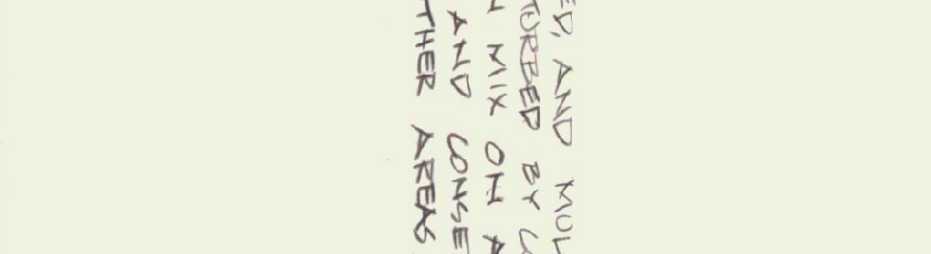 ED, AND MUL
TURBED BY C
N MIX ON A
AND CONSE
THER AREAS